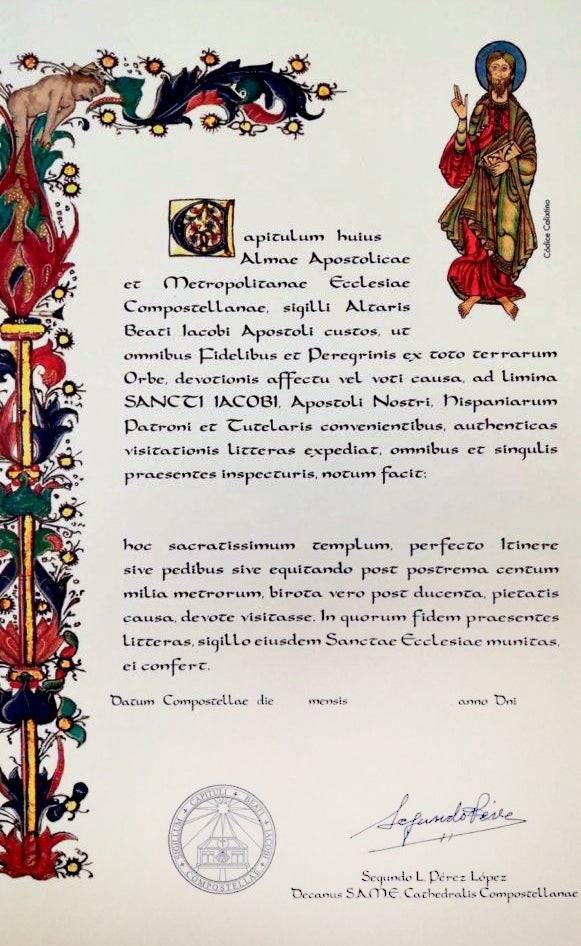 Capitulum huius
Almae Apostolicae
et Metropolitanae Ecclesiae
Compostellanae, sigilli Altaris
Beati Iacobi Apostoli custos, ut
omnibus Fidelibus et Peregrinis ex toto terrarum
Orbe, devotionis affectu vel voti causa, ad limina
SANCTI IACOBI, Apostoli Nostri, Hispaniarum
Patroni et Tutelaris convenientibus, authenticas
visitationis litteras expediat, omnibus et singulis
praesentes inspecturis, notum facit:
Códice Calixtino
hoc sacratissimum templum, perfecto Itinere
sive pedibus sive equitando post postrema centum
milia metrorum, birota vero post ducenta, pietatis
causa, devote visitasse. In quorum fidem praesentes
litteras, sigillo eiusdem Sanctae Ecclesiae munitas,
ei confert.
Datum Compostellae die mensis anno Dni
SIGILLUM + CAPITULI + BEATI + IACOBI + COMPOSTELLAE +
Segundo Pérez
Segundo L. Pérez López
Decanus S.A.M.E. Cathedralis Compostellanae